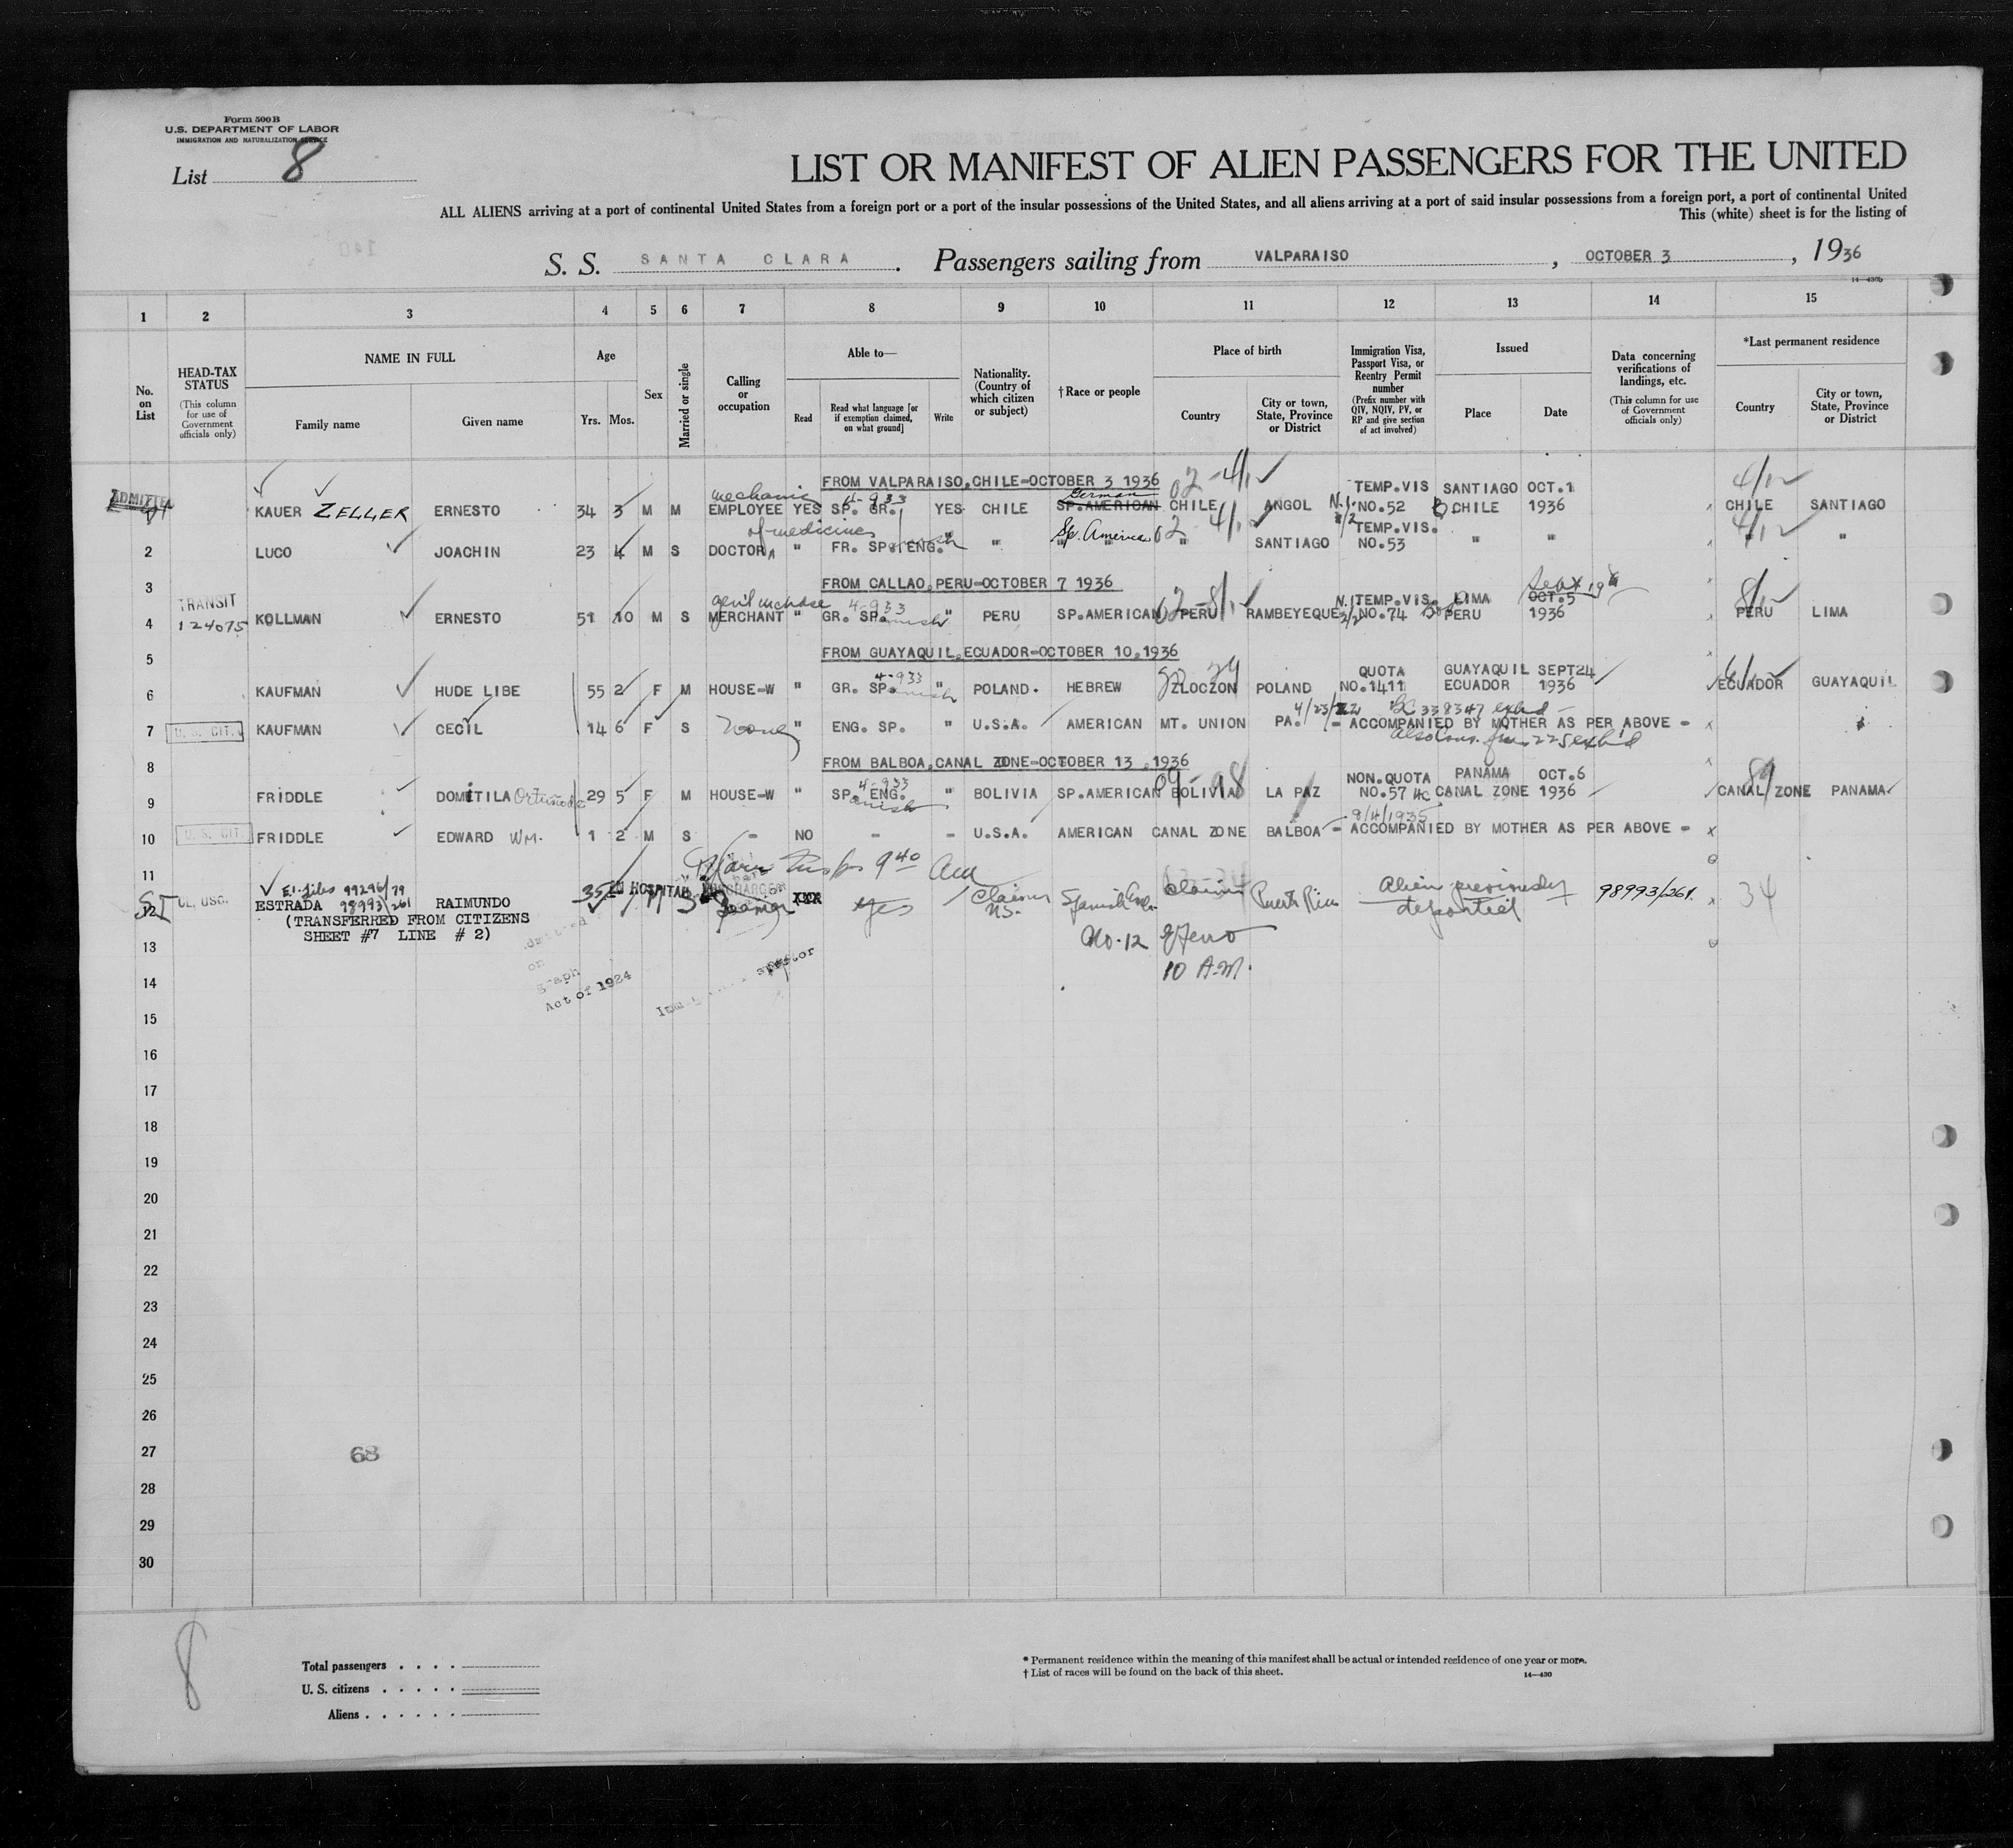 Form 500 B
U.S. DEPARTMENT OF LABOR
IMMIGRATION AND NATURALIZATION SERVICE
List 8
LIST OR MANIFEST OF ALIEN PASSENGERS FOR THE UNITED
ALL ALIENS arriving at a port of continental United States from a foreign port or a port of the insular possessions of the United States, and all aliens arriving at a port of said insular possessions from a foreign port, a port of continental United
This (white) sheet is for the listing of
S. S. SANTA CLARA. Passengers sailing from VALPARAISO, OCTOBER 3, 1936
14—430b
1 2 3 4 5 6 7 8 9 10 11 12 13 14 15
No. on List
HEAD-TAX STATUS (This column for use of Government officials only)
NAME IN FULL
Family name Given name
Age
Yrs. Mos.
Sex
Married or single
Calling or occupation
Able to—
Read Read what language [or if exemption claimed, on what ground] Write
Nationality. (Country of which citizen or subject)
† Race or people
Place of birth
Country City or town, State, Province or District
Immigration Visa, Passport Visa, or Reentry Permit number (Prefix number with QIV, NQIV, PV, or RP and give section of act involved)
Issued
Place Date
Data concerning verifications of landings, etc. (This column for use of Government officials only)
*Last permanent residence
Country City or town, State, Province or District
FROM VALPARAISO, CHILE-OCTOBER 3 1936 02-4/1 4/1
ADMITTED mechanic 4-933 German TEMP.VIS SANTIAGO OCT.1
KAUER ZELLER ERNESTO 34 3 M M EMPLOYEE YES SP. GR. YES CHILE SP.AMERICAN CHILE ANGOL NO.52 CHILE 1936 CHILE SANTIAGO
of medicines 02-4/1 TEMP.VIS. 4/1
2 LUCO JOACHIN 23 4 M S DOCTOR " FR. SP. ENG. " " Sp. American " SANTIAGO NO.53 " " "
3 FROM CALLAO, PERU-OCTOBER 7 1936
TRANSIT 4-933 02-8/1 TEMP.VIS. LIMA OCT.5 8/1
4 124075 KOLLMAN ERNESTO 51 10 M S MERCHANT " GR. SPanish " PERU SP.AMERICAN PERU RAMBEYEQUE NO.74 PERU 1936 PERU LIMA
5 FROM GUAYAQUIL, ECUADOR-OCTOBER 10, 1936
4-933 QUOTA GUAYAQUIL SEPT24
6 KAUFMAN HUDE LIBE 55 2 F M HOUSE-W " GR. SPanish " POLAND. HEBREW ZLOCZON POLAND NO.1411 ECUADOR 1936 ECUADOR GUAYAQUIL
4/23/22 BC 338347 exhd
7 U. S. CIT. KAUFMAN CECIL 14 6 F S None " ENG. SP. " U.S.A. AMERICAN MT. UNION PA. - ACCOMPANIED BY MOTHER AS PER ABOVE -
8 FROM BALBOA, CANAL ZONE-OCTOBER 13, 1936
4-933 09-98 NON.QUOTA PANAMA OCT.6 89
9 FRIDDLE DOMITILA 29 5 F M HOUSE-W " SPanish ENG. " BOLIVIA SP.AMERICAN BOLIVIA LA PAZ NO.57 CANAL ZONE 1936 CANAL ZONE PANAMA
8/4/1935
10 U. S. CIT. FRIDDLE EDWARD WM. 1 2 M S - NO - - U.S.A. AMERICAN CANAL ZONE BALBOA - ACCOMPANIED BY MOTHER AS PER ABOVE -
11 9 40
E.I. files 99296/79 IN HOSPITAL DISCHARGED Claims Claims Alien previously
SI 12 CL. USC. ESTRADA 98993/261 RAIMUNDO 35 M S Seaman XXX Yes US. Spanish Puerto Rico deported 98993/261. 34
(TRANSFERRED FROM CITIZENS
SHEET #7 LINE # 2)
No. 12
10 A.M.
Act of 1924
13
14
15
16
17
18
19
20
21
22
23
24
25
26
27 68
28
29
30
8
Total passengers
U. S. citizens
Aliens
* Permanent residence within the meaning of this manifest shall be actual or intended residence of one year or more.
† List of races will be found on the back of this sheet. 14—430